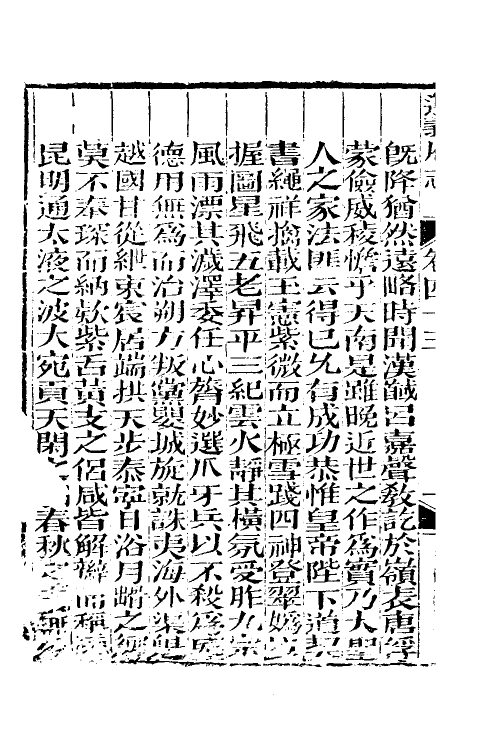 遵義府志 卷四十三
既降猶然遠略時開漢馘呂嘉聲敎訖於嶺表唐俘
蒙儉威稜憺乎天南是雖晚近世之作爲實乃大聖
人之家法匪云得已允有成功恭惟皇帝陛下道契
書繩祥摛載玉憲紫微而立極雪踐四神登翠嬀以
握圖星飛五老昇平三紀雲火靜其橫氛受胙九宗
風雨漂其濊澤委任心膂妙選爪牙兵以不殺爲威
德用無爲而治朔方叛黨嬰城旋就誅夷海外渠魁
越國甘從紲束袞居端拱天步泰寧日浴月之
莫不奉琛而納款紫舌黃支之侶咸皆解辮而稱
昆明通太液之波大宛貢天閑之 春秋之義